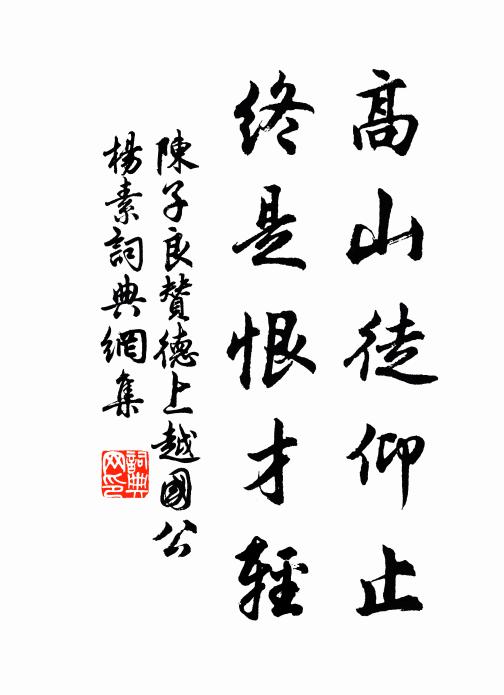 高山徒仰止
終是恨才輕
陳子良賛德上越國公
楊素詞典網集
詞典網印